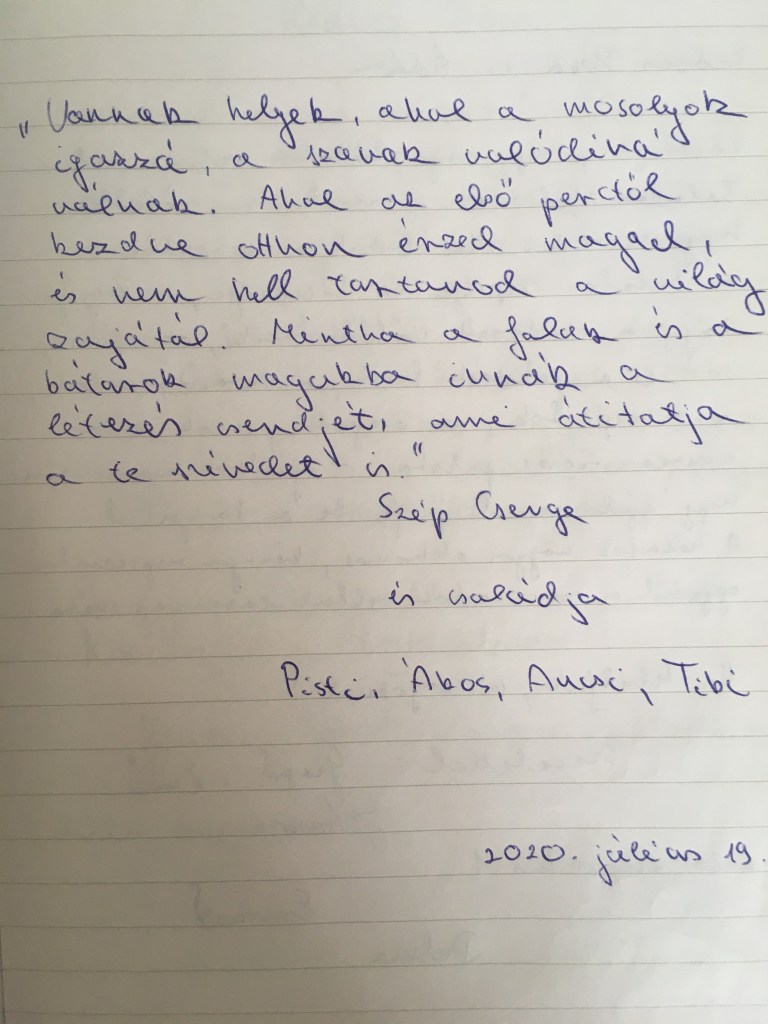 „Vannak helyek, ahol a mosolyok
igazzá, a szavak valódivá
válnak. Ahol az első perctől
kezdve otthon érzed magad,
és nem kell tartanod a világ
zajától. Mintha a falak és a
bútorok magukba innák a
létezés csendjét, ami átitatja
a te szívedet is."
Szép Csenge
és családja
Pisti, Ákos, Ancsi, Tibi
2020. július 19.